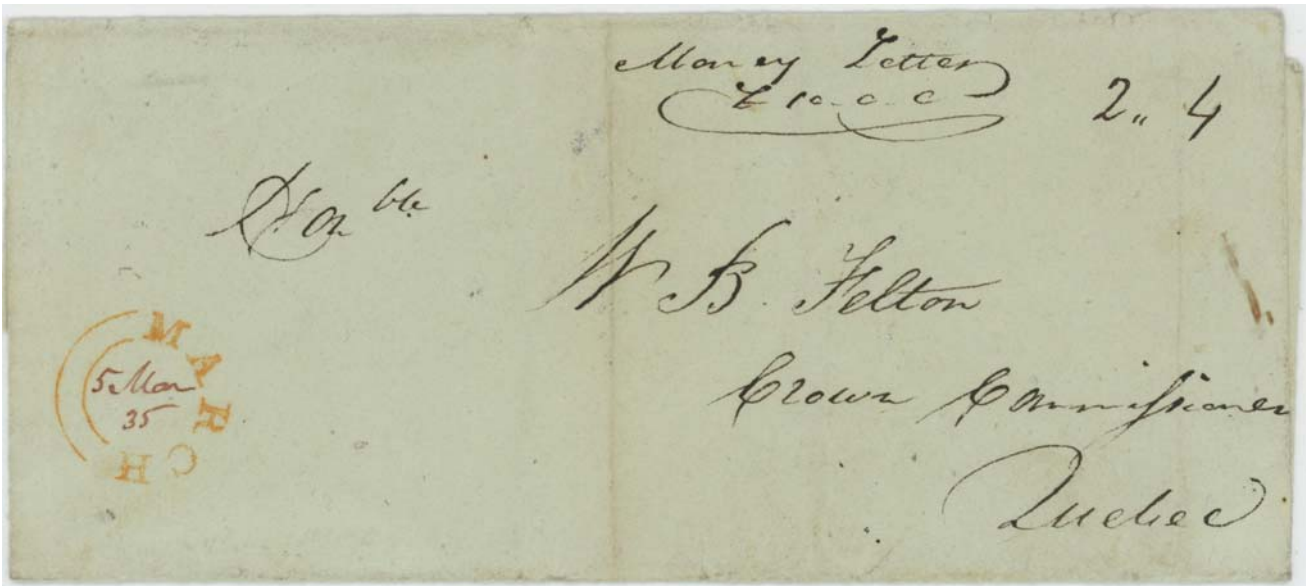 Money Letter
£ 10.0.0
2 „ 4
Honble
W B. Felton
Crown Commissioner
Quebec
MARCH
5 Mar
35